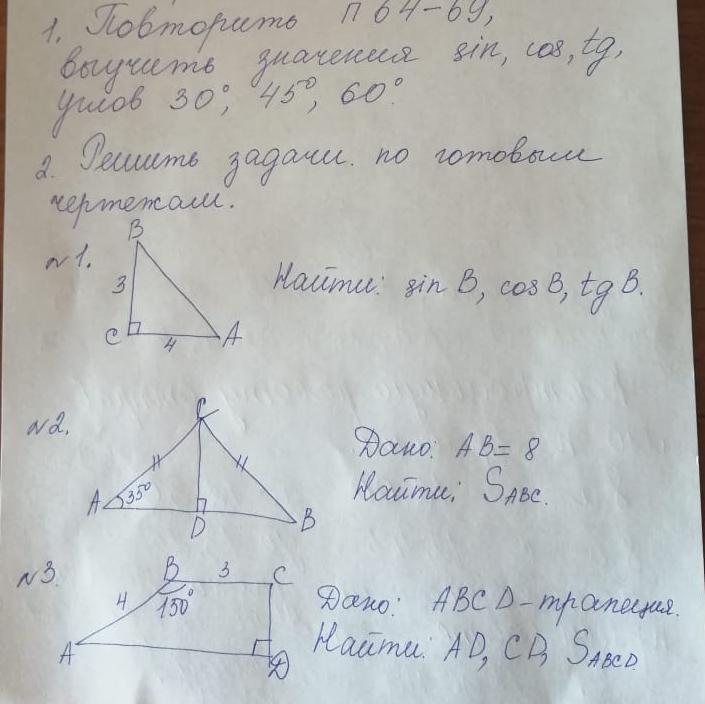 1. Повторить п 64-69,
выучить значения sin, cos, tg,
углов 30°, 45°, 60°.
2. Решить задачи по готовым
чертежам.
№1.
B
3
C
4
A
Найти: sin B, cos B, tg B.
№2.
C
A
35°
D
B
Дано: AB = 8
Найти: S ABC.
№3.
B
3
C
4
150°
A
D
Дано: ABCD - трапеция.
Найти: AD, CD, S ABCD.